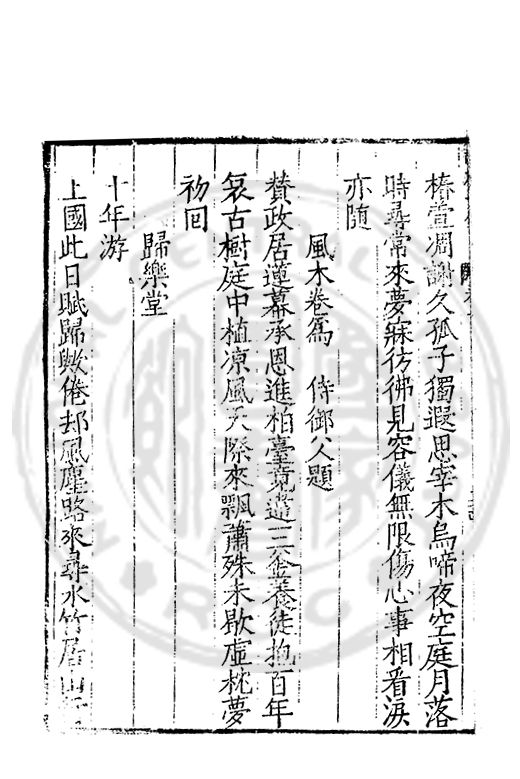 椿萱凋謝久孤子獨遐思宰木烏啼夜空庭月落
時尋常來夢寐彷彿見容儀無限傷心事相看淚
亦隨
風木卷爲 侍御父題
賛政居蓮幕承恩進柏臺竟違三釡養徒抱百年
哀古樹庭中植凉風天際來飄蕭殊未歇虛枕夢
初回
歸樂堂
十年游
上國此日賦歸歟倦却風塵路來尋水竹居山